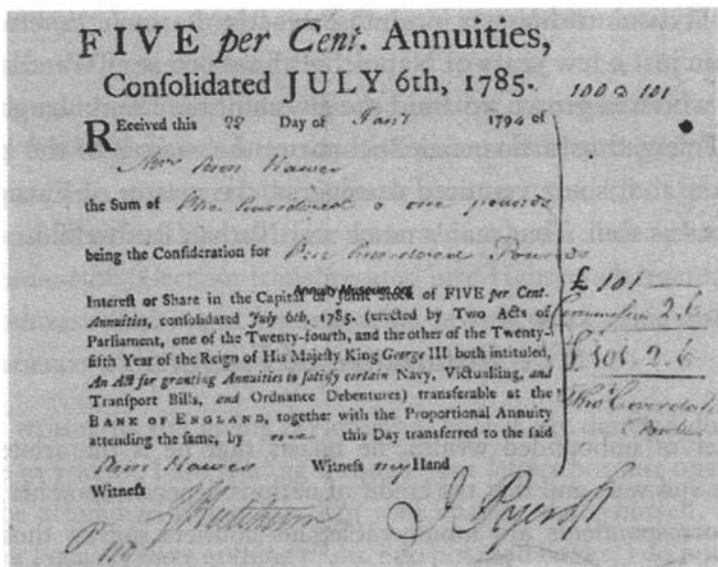 FIVE per Cent. Annuities,
Conſolidated JULY 6th, 1785.
100 @ 101
REceived this 22 Day of Jany 1794 of
Mrs Ann Hawes
the Sum of One hundred & one pounds
being the Conſideration for One hundred Pounds
£ 101
AnnuityMuseum.org
Intereſt or Share in the Capital or Joint Stock of FIVE per Cent.
Annuities, conſolidated July 6th, 1785. (erected by Two Acts of
Commiſsion 2.6
Parliament, one of the Twenty-fourth, and the other of the Twenty-
fifth Year of the Reign of His Majeſty King George III. both intituled,
£ 101.2.6
An Act for granting Annuities to ſatisfy certain Navy, Victualling, and
Tranſport Bills, and Ordnance Debentures) transferable at the
BANK OF ENGLAND, together with the Proportional Annuity
Thos Coverdale
attending the ſame, by me this Day transferred to the ſaid
Ann Hawes Witneſs my Hand
Witneſs